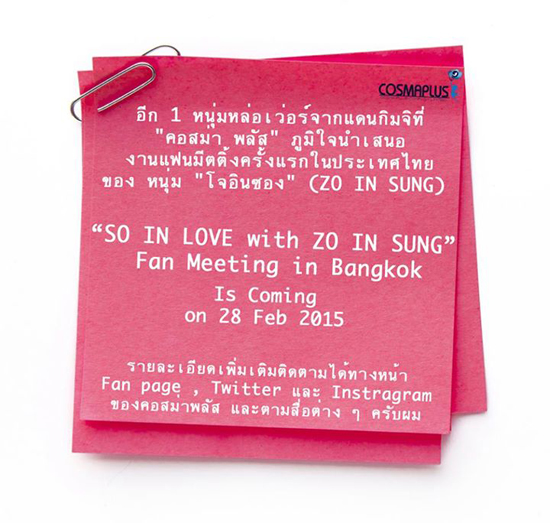 COSMAPLUS
อีก 1 หนุ่มหล่อเว่อร์จากแดนกิมจิที่
"คอสม่า พลัส" ภูมิใจนำเสนอ
งานแฟนมีตติ้งครั้งแรกในประเทศไทย
ของ หนุ่ม "โจอินซอง" (ZO IN SUNG)
“SO IN LOVE with ZO IN SUNG”
Fan Meeting in Bangkok
Is Coming
on 28 Feb 2015
รายละเอียดเพิ่มเติมติดตามได้ทางหน้า
Fan page , Twitter และ Instragram
ของคอสม่าพลัส และตามสื่อต่าง ๆ ครับผม